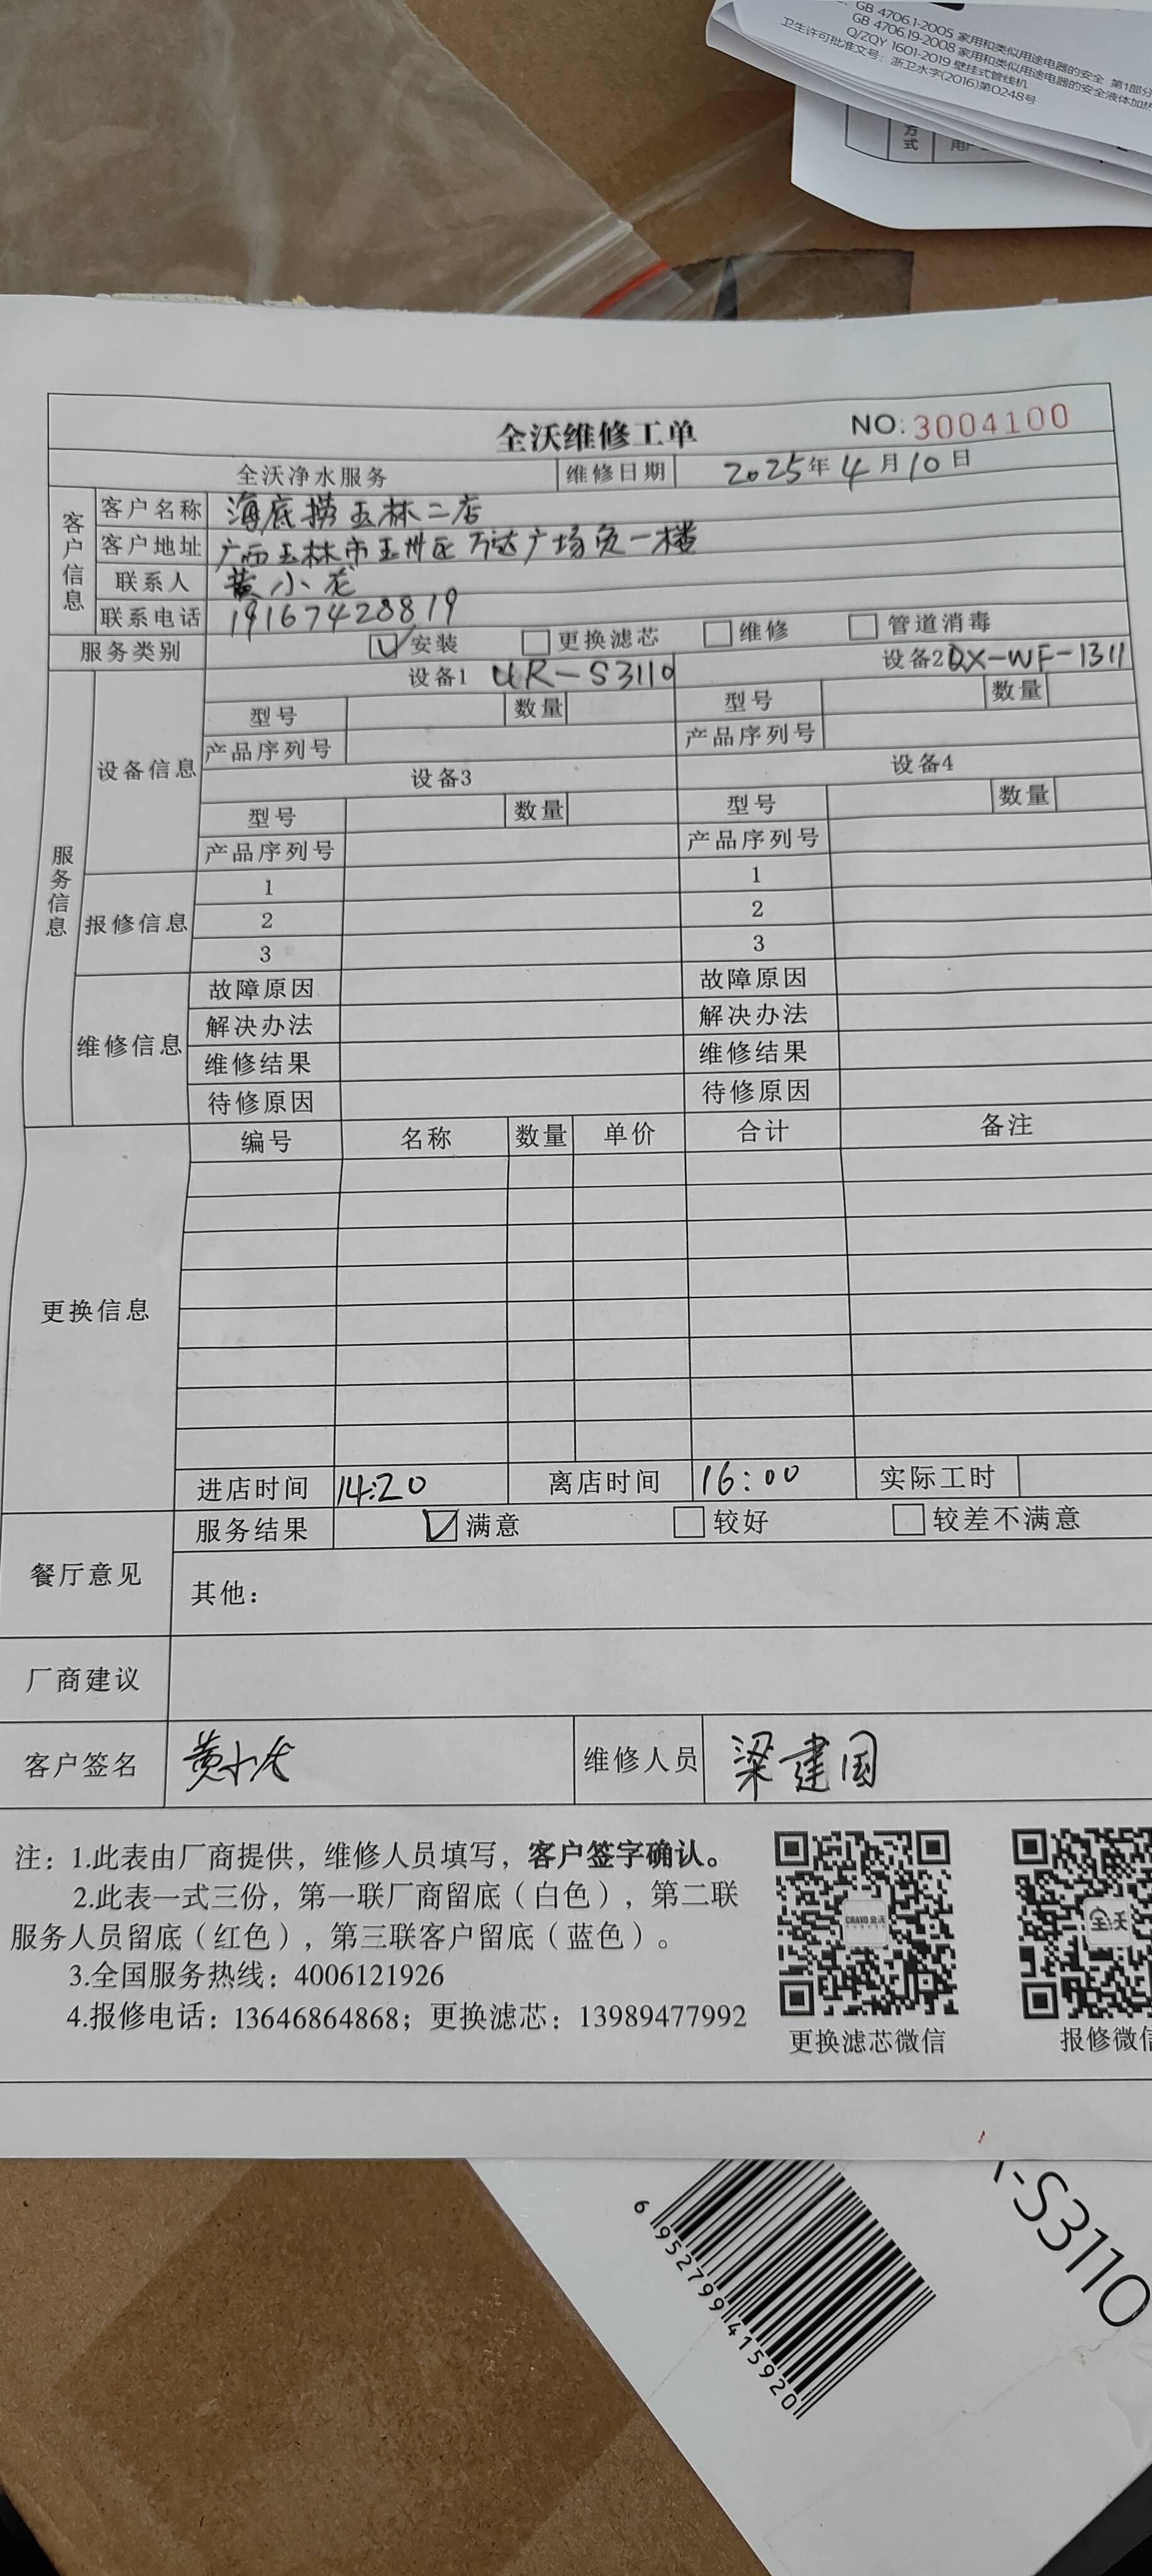 GB 4706.1-2005 家用和类似用途电器的安全 第1部分
GB 4706.19-2008 家用和类似用途电器的安全液体加热
Q/ZQY 1601-2019 壁挂式管线机
卫生许可批准文号：浙卫水字(2016)第0248号
方式 用户
全沃维修工单 NO:3004100
全沃净水服务 维修日期 2025年4月10日
客户信息
客户名称 海底捞玉林二店
客户地址 广西玉林市玉州区万达广场负一楼
联系人 黄小龙
联系电话 19167428819
服务类别 安装 更换滤芯 维修 管道消毒
服务信息
设备信息
设备1 UR-S3110 设备2 QX-WF-1311
型号 数量 型号 数量
产品序列号 产品序列号
设备3 设备4
型号 数量 型号 数量
产品序列号 产品序列号
报修信息
1 1
2 2
3 3
维修信息
故障原因 故障原因
解决办法 解决办法
维修结果 维修结果
待修原因 待修原因
更换信息
编号 名称 数量 单价 合计 备注
进店时间 14:20 离店时间 16:00 实际工时
餐厅意见
服务结果 满意 较好 较差不满意
其他：
厂商建议
客户签名 黄小龙 维修人员 梁建国
注：1.此表由厂商提供，维修人员填写，客户签字确认。
2.此表一式三份，第一联厂商留底（白色），第二联
服务人员留底（红色），第三联客户留底（蓝色）。
3.全国服务热线：4006121926
4.报修电话：13646864868；更换滤芯：13989477992
CRAVO 全沃
全沃
更换滤芯微信 报修微信
-S3110
6 952799 415920